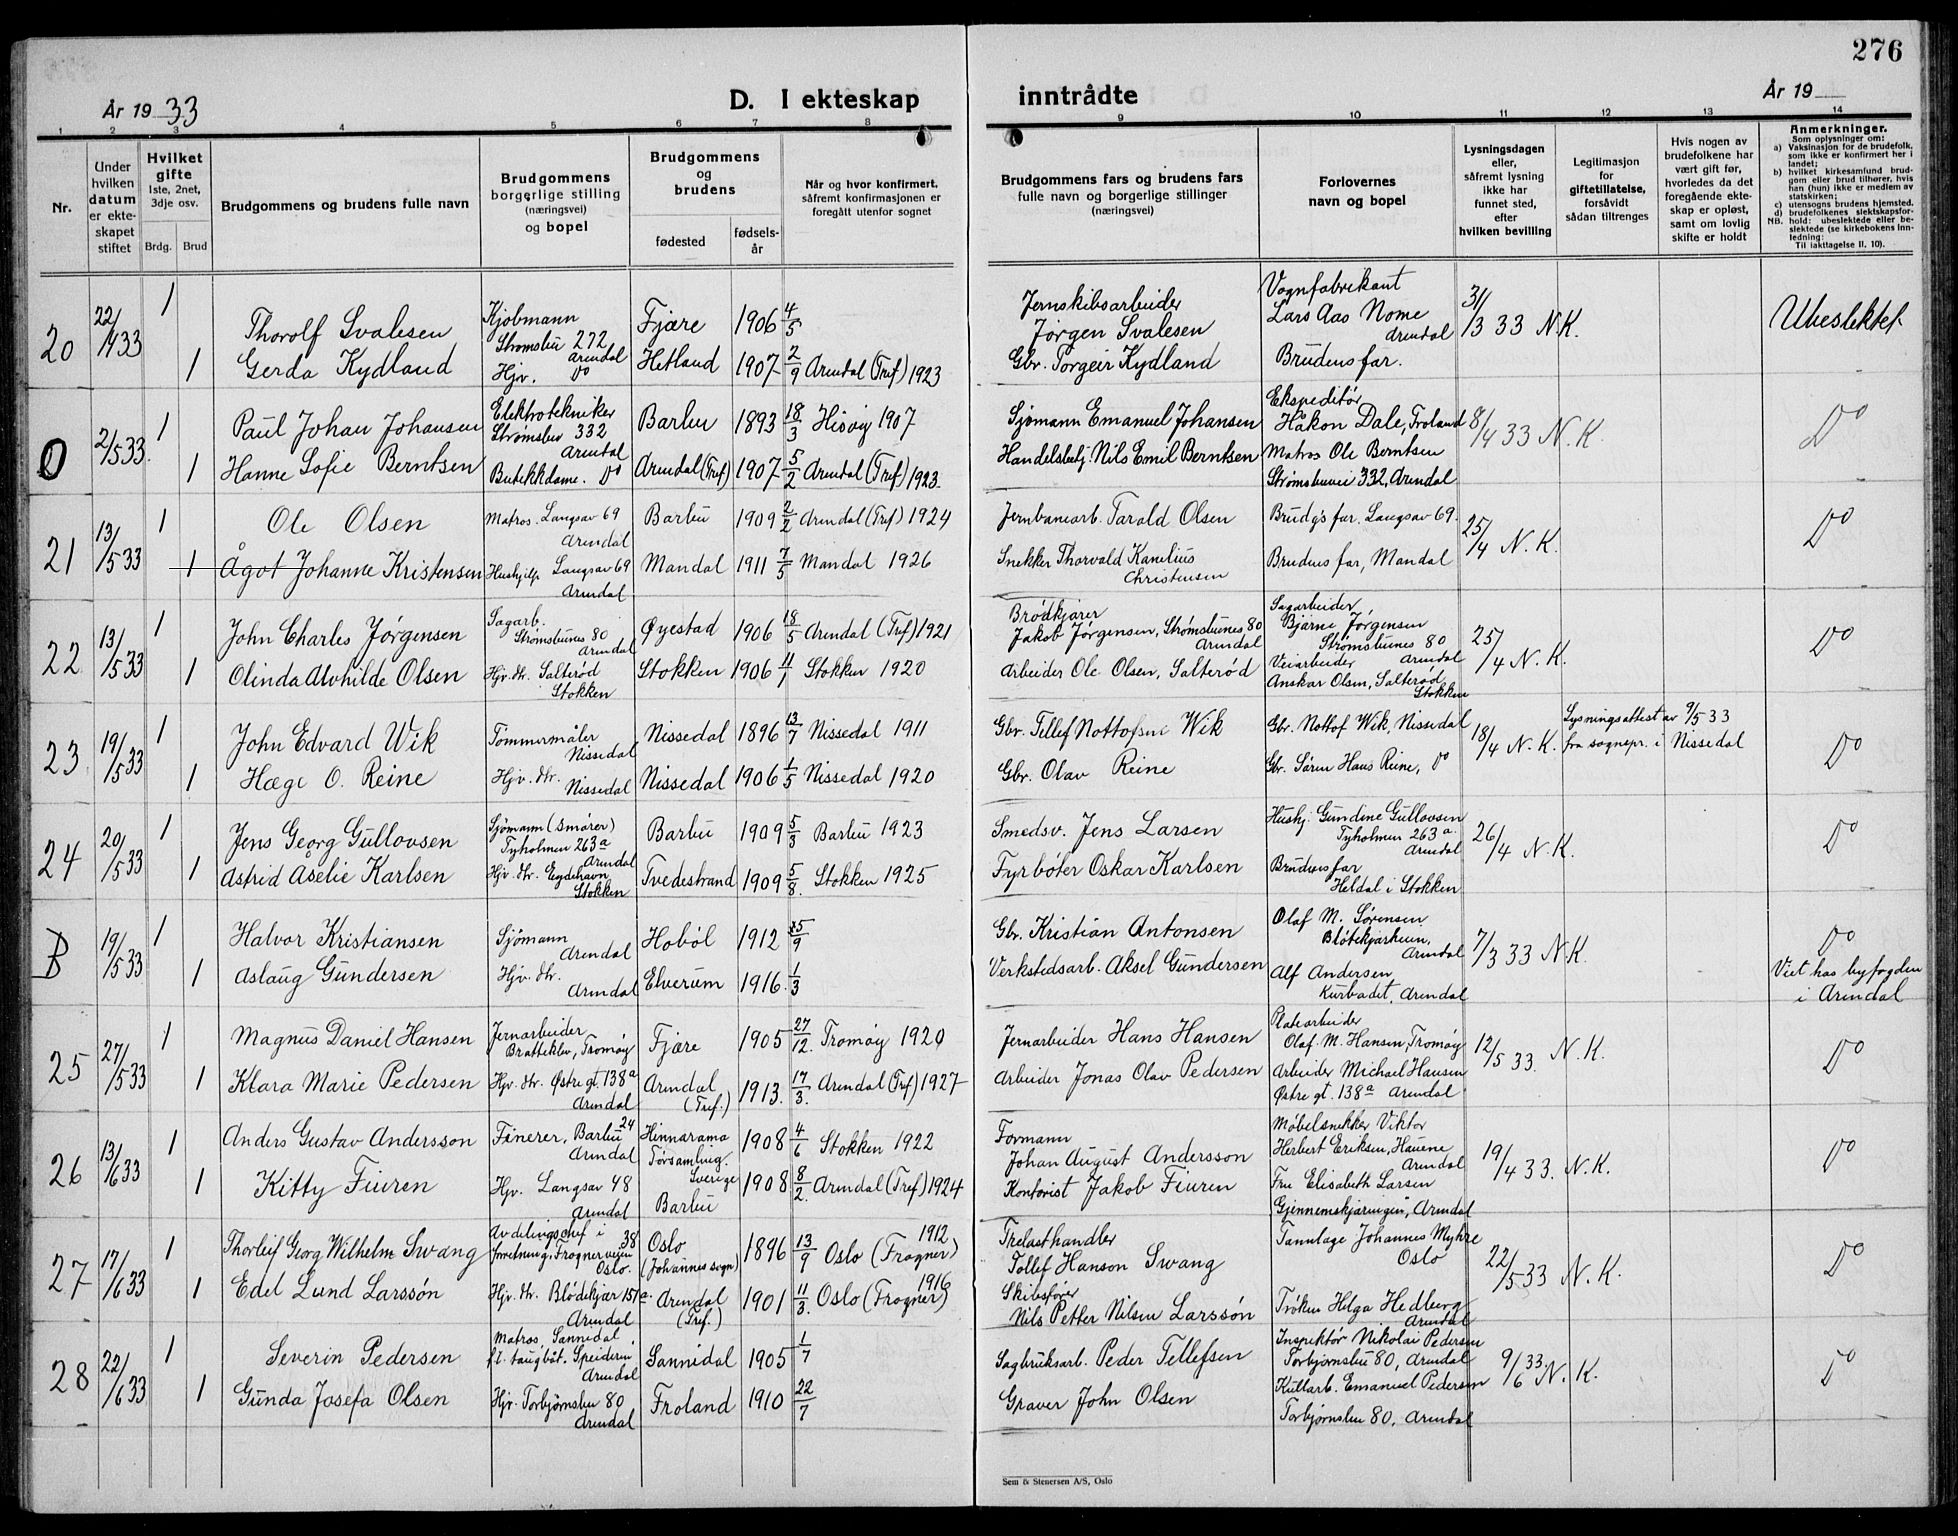 276
År 1933
D. I ekteskap
inntrådte
År 19
1 2 3 4 5 6 7 8 9 10 11 12 13 14
Nr.
Under hvilken datum er ekteskapet stiftet
Hvilket gifte
1ste, 2net, 3dje osv.
Brdg. Brud
Brudgommens og brudens fulle navn
Brudgommens borgerlige stilling (næringsvei) og bopel
Brudgommens og brudens
fødested
fødselsår
Når og hvor konfirmert, såfremt konfirmasjonen er foregått utenfor sognet
Brudgommens fars og brudens fars fulle navn og borgerlige stillinger (næringsvei)
Forlovernes navn og bopel
Lysningsdagen eller, såfremt lysning ikke har funnet sted, efter hvilken bevilling
Legitimasjon for giftetillatelse, forsåvidt sådan tiltrenges
Hvis nogen av brudefolkene har vært gift før, hvorledes da det foregående ekteskap er opløst, samt om lovlig skifte er holdt
Anmerkninger.
Som oplysninger om:
a) Vaksinasjon for de brudefolk, som ikke er konfirmert her i landet;
b) hvilket kirkesamfund brudgom eller brud tilhører, hvis han (hun) ikke er medlem av statskirken;
c) utensogns brudens hjemsted.
d) brudefolkenes slektskapsforhold: ubeslektede eller beslektede (se kirkebokens Innledning:
NB.
Til iakttagelse II. 10).
20 22/4 33 1 Thorolf Svalesen Kjøbmann Strømsbu 272 Arendal Fjære 1906 4/5 Jernskibsarbeider Jørgen Svalesen Vognfabrikant Lars Aas Nome Arendal 31/3 33 N.K. Ubeslektet
1 Gerda Kydland Hjv. Do Hetland 1907 2/9 Arendal (Tref) 1923 Gbr. Torgeir Kydland Brudens far.
O 2/5 33. 1 Paul Johan Johansen Elektrotekniker Strømsbu 332 Arendal Barbu 1893 18/3 Hisøy 1907 Sjømann Emanuel Johansen Ekspeditør Håkon Dale, Froland 8/4 33 N.K. Do
1 Hanne Sofie Berntsen Butikkdame. Do Arendal (Tref) 1907 5/2 Arendal (Tref) 1923. Handelsbetj. Nils Emil Berntsen Matros Ole Berntsen Strømsbuvei 332, Arendal
21 13/5 33 1 Ole Olsen Matros. Langsæv 69 Arendal Barbu 1909 2/2 Arendal (Tref) 1924 Jernbanearb. Tarald Olsen Brudg's far. Langsæv 69. 25/4 N.K. Do
1 Ågot Johanne Kristensen Hushjelp Langsæv 69 Arendal Mandal 1911 7/5 Mandal 1926 Snekker Thorvald Kanelius Christensen Brudens far, Mandal
22 13/5 33 1 John Charles Jørgensen Sagarb. Strømsbunes 80 Arendal Øyestad 1906 18/5 Arendal (Tref) 1921 Brødkjører Jakob Jørgensen, Strømsbunes 80 Arendal Sagarbeider Bjarne Jørgensen Strømsbunes 80 Arendal 25/4 N.K. Do
1 Olinda Alvhilde Olsen Hjv. dtr. Salterød Stokken Stokken 1906 Stokken 1920 Arbeider Ole Olsen, Salterød Veiarbeider Anskar Olsen, Salterød Stokken
23 19/5 33 1 John Edvard Wik Tømmermåler Nissedal Nissedal 1896 13/7 Nissedal 1911 Gbr. Tellef Nottofsen Wik Gbr. Nottof Wik, Nissedal 18/4 N.K. Lysningsattest av 9/5 33 fra sognepr. i Nissedal Do
1 Hæge O. Reine Hjv. dtr. Nissedal Nissedal 1906 1/5 Nissedal 1920 Gbr. Olav Reine Gbr. Søren Hans Reine, Do
24 20/5 33 1 Jens Georg Gullovsen Sjømann (smører) Tyholmen 263a Arendal Barbu 1909 5/3 Barbu 1923 Smedsv. Jens Larsen Hushj. Gundine Gullovsen Tyholmen 263a. Arendal 26/4 N.K. Do
1 Astrid Åselie Karlsen Hjv. dtr. Eydehavn Stokken Tvedestrand 1909 5/8 Stokken 1925 Fyrbøter Oskar Karlsen Brudens far Heldal i Stokken
B 19/5 33 1 Halvor Kristiansen Sjømann Arendal Hobøl 1912 25/9 Gbr. Kristian Antonsen Olaf M. Sørensen Bløtekjærheien, Arendal 7/3 33 N.K. Do Viet hos byfogden i Arendal
1 Aslaug Gundersen Hjv. dtr. Arendal Elverum 1916. 1/3 Verkstedsarb. Aksel Gundersen Alf Andersen Kurbadet, Arendal
25 27/5 33 1 Magnus Daniel Hansen Jernarbeider Bratteklev, Tromøy Fjære 1905 27/12. Tromøy 1920 Jernarbeider Hans Hansen Platearbeider Olaf. M. Hansen, Tromøy 12/5 33. N.K. Do
1 Klara Marie Pedersen Hjv. dtr. Østre gt. 138a Arendal Arendal (Tref.) 1913. 17/3. Arendal (Tref) 1927 Arbeider Jonas Olav Pedersen Arbeider Michael Hansen Østre gt. 138a Arendal
26 13/6 33 1 Anders Gustav Andersson Finerer, Barbu 24 Arendal Hinnarama Församling. Sverige 1908 4/6 Stokken 1922 Formann Johan August Andersson Møbelsnekker Viktor Herbert Eriksen, Hauene Arendal 19/4 33. N.K. Do
1 Kitty Fiuren Hjv. Langsæv 48 Arendal Barbu 1908 8/2. Arendal (Tref) 1924 Kontorist Jakob Fiuren Fru Elisabeth Larsen Gjennemskjæringen, Arendal
27 17/6 33 1 Thorleif Georg Wilhelm Swang Avdelingschef i forretning, Frognerveien 38 Oslo. Oslo (Johannes sogn) 1896 13/9 Oslo (Frogner) 1912 Trelasthandler Tollef Hanson Swang Tannlæge Johannes Myhre Oslo 22/5 33 N.K. Do
1 Edel Lund Larssøn Hjv. dtr. Blødekjær 151a Arendal Arendal (Tref.) 1901 11/3. Oslo (Frogner) 1916 Skibsfører Nils Petter Nilsen Larssøn Frøken Helga Hedberg Arendal
28 22/6 33 1 Severin Pedersen Matros, Sannidal, f.t. taugbåt. Speideren Arendal Sannidal 1905 1/7 Sagbruksarb. Peder Tellefsen Inspektør Nikolai Pedersen Torbjørnsbu 80, Arendal 9/6 33 N.K. Do
1 Gunda Josefa Olsen Hjv. Torbjørnsbu 80 Arendal Froland 1910 22/7 Graver John Olsen Kullarb. Emanuel Pedersen Torbjørnsbu 80, Arendal
Sem & Stenersen A/S, Oslo